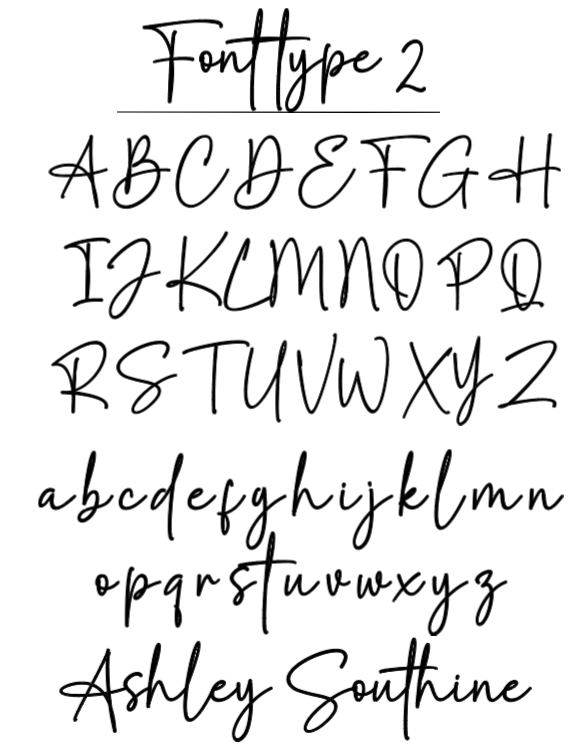 Fonttype 2
ABCDEFGH
IJKLMNOPQ
RSTUVWXYZ
abcdefghijklmn
opqrstuvwxyz
Ashley Southine